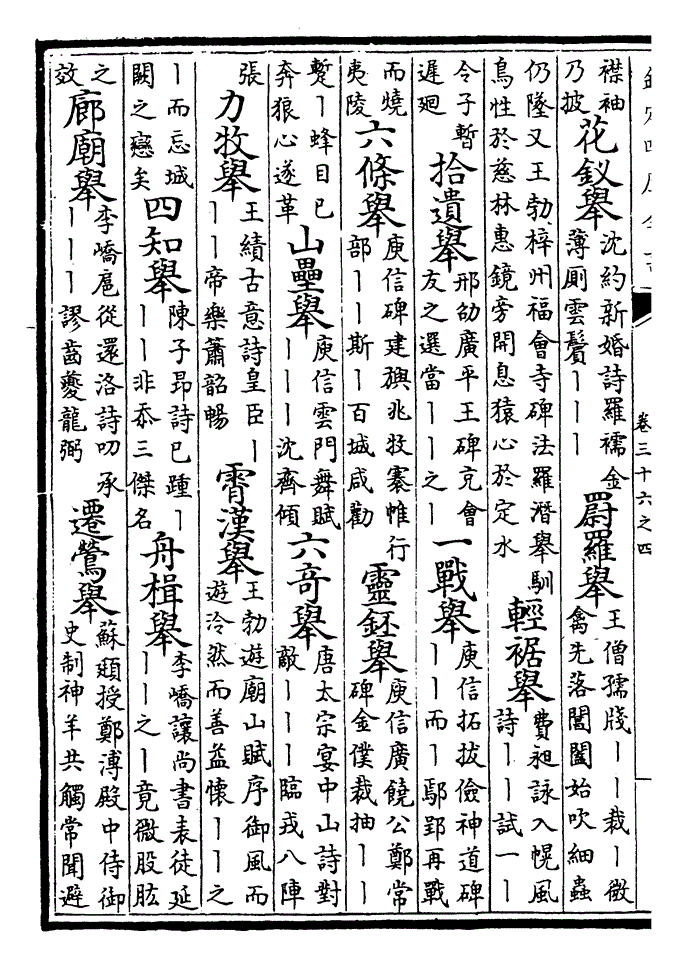 欽定四庫全書
卷三十六之四
襟袖
乃披
花釵舉
沈約新婚詩羅襦金
薄廁雲鬢丨丨丨
罻羅舉
王僧孺牋丨丨裁丨微
禽先落閶闔始吹細蟲
仍墜又王勃梓州福會寺碑法羅潛舉馴
鳥性於慈林惠鏡旁開息猿心於定水
輕裾舉
費昶詠入幌風
詩丨丨試一丨
令子暫
遲廻
拾遺舉
邢劭廣平王碑兗會
友之選當丨丨之丨
一戰舉
庾信拓拔儉神道碑
丨丨而丨鄢郢再戰
而燒
夷陵
六條舉
庾信碑建旟兆牧褰帷行
部丨丨斯丨百城咸勸
靈鉟舉
庾信廣饒公鄭常
碑金僕裁抽丨丨
蹔丨蜂目已
奔狼心遂革
山罍舉
庾信雲門舞賦
丨丨丨沈齊傾
六奇舉
唐太宗宴中山詩對
敵丨丨丨臨戎八陣
張
力牧舉
王績古意詩皇臣丨
丨丨帝樂簫韶暢
霄漢舉
王勃遊廟山賦序御風而
遊泠然而善益懷丨丨之
丨而忘城
闕之戀矣
四知舉
陳子昻詩已踵丨
丨丨非忝三傑名
舟楫舉
李嶠讓尚書表徒延
丨丨之丨竟微股肱
之
效
廊廟舉
李嶠扈從還洛詩叨承
丨丨丨謬齒夔龍弼
遷鶯舉
蘇頲授鄭溥殿中侍御
史制神羊共觸常聞避